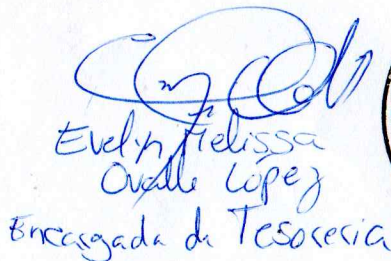 Evelyn Melissa
Ovalle López
Encargada de Tesoreria